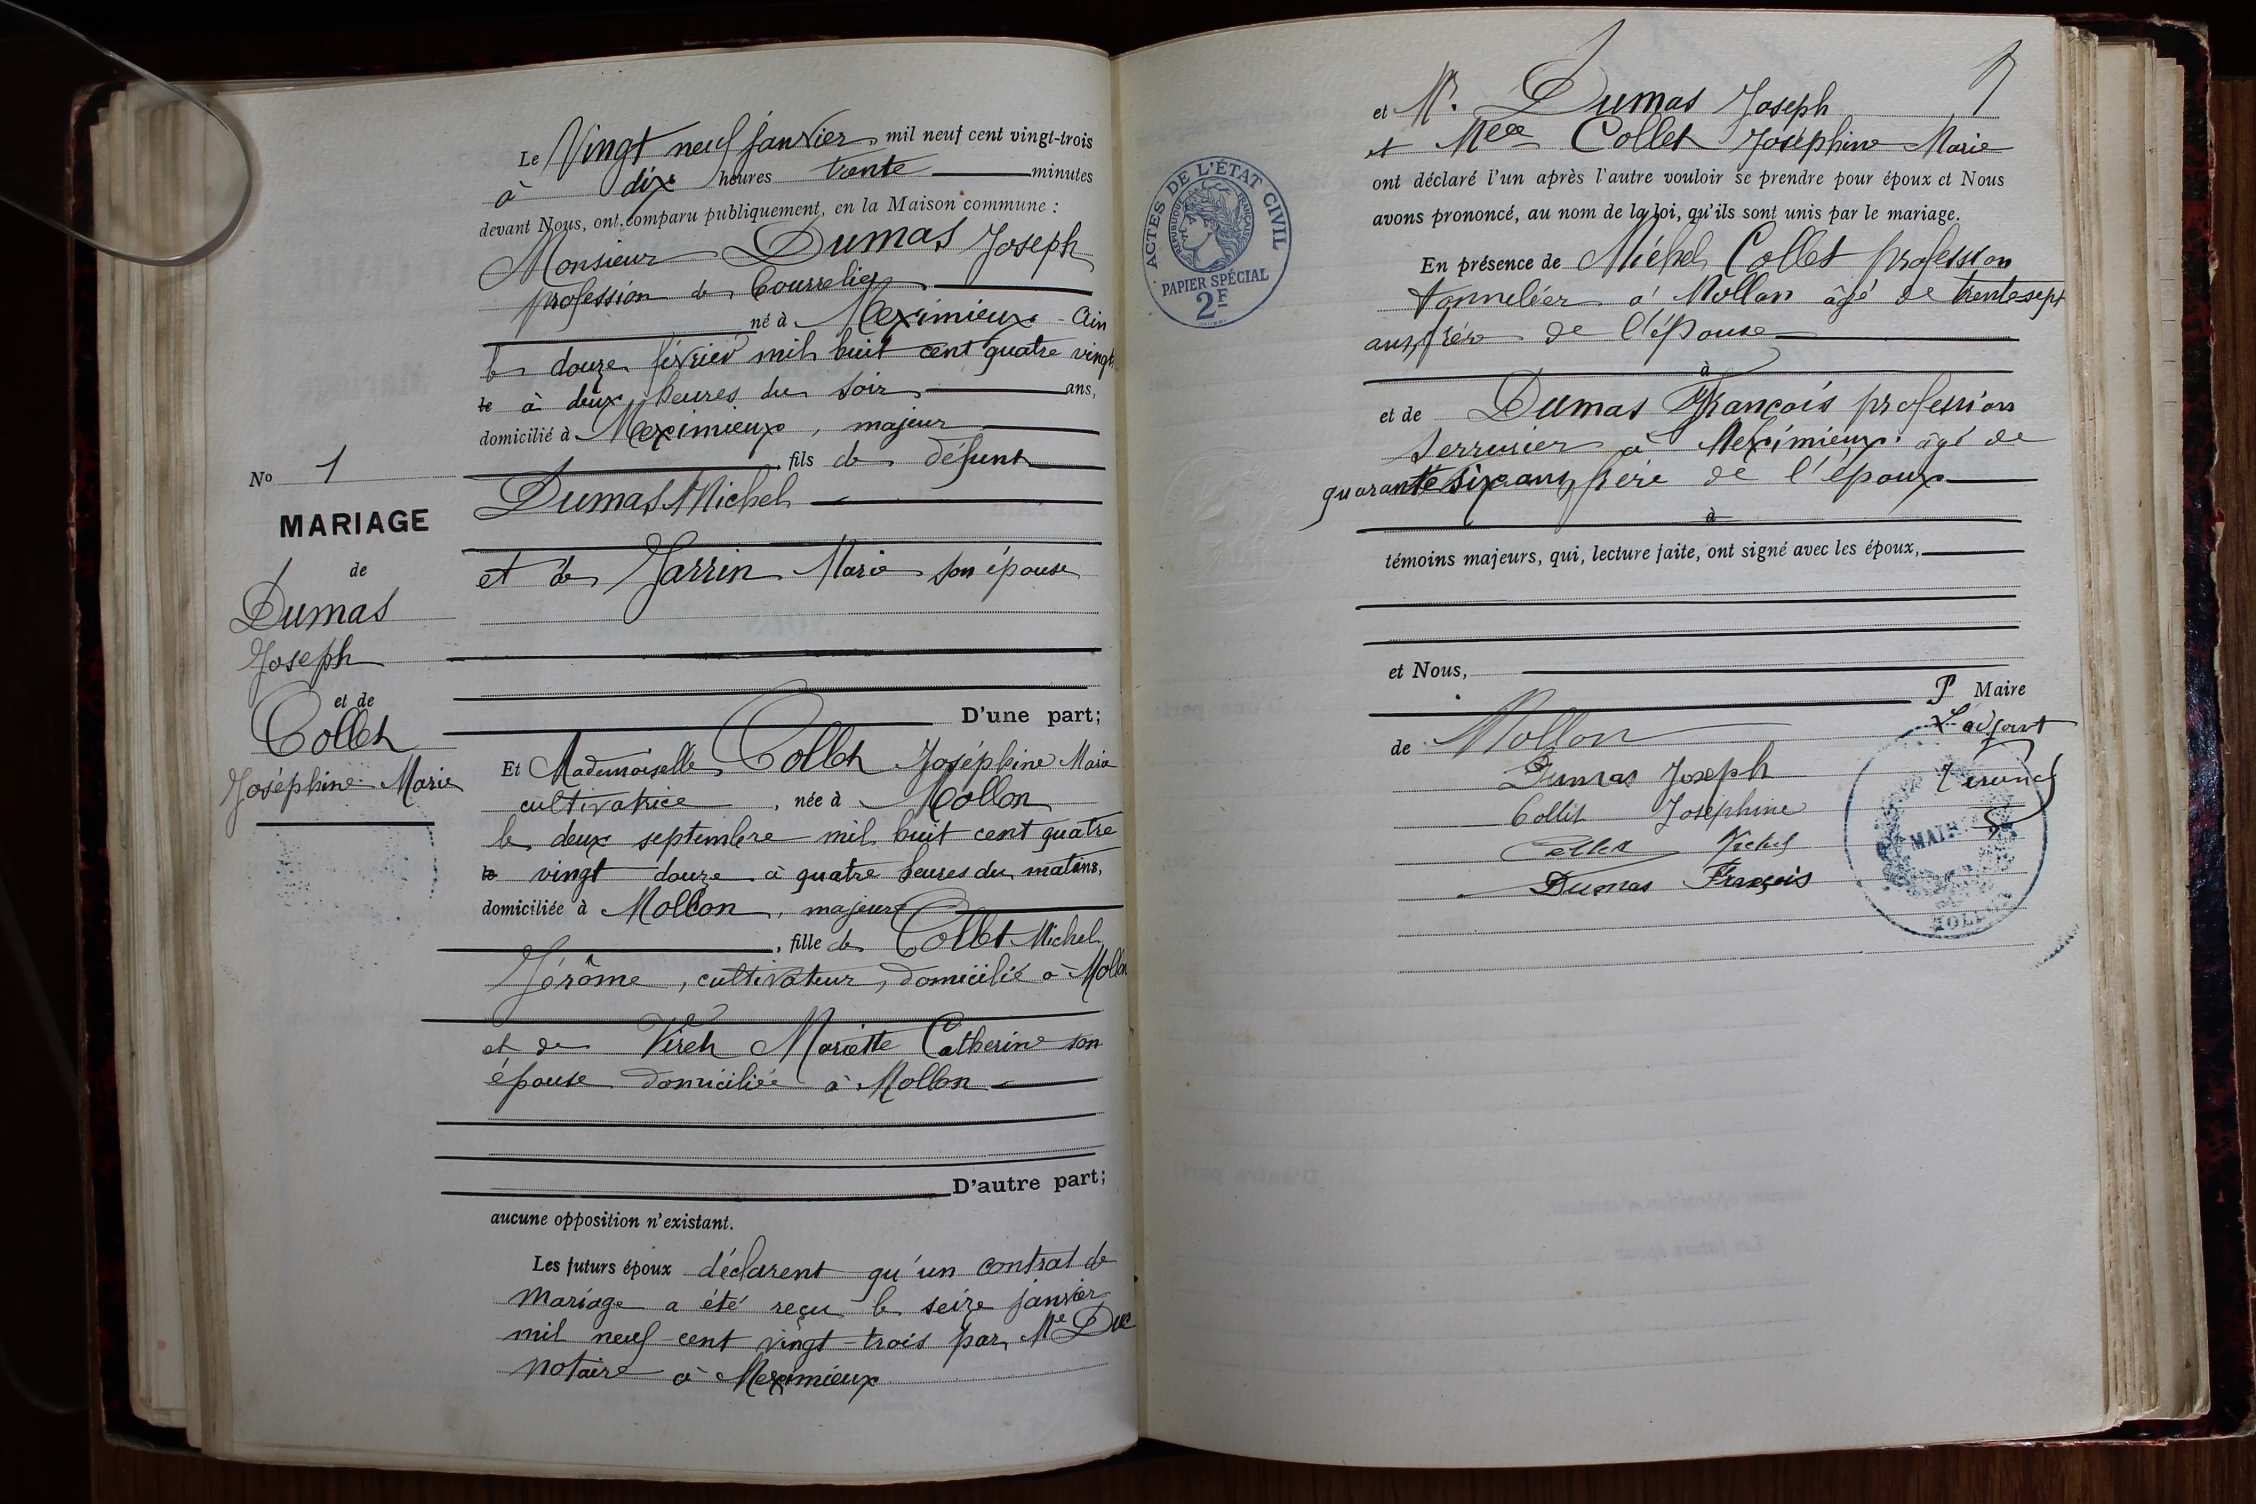 Le Vingt neuf janvier mil neuf cent vingt-trois
à dix heures trente minutes
devant Nous, ont comparu publiquement, en la Maison commune :
Monsieur Dumas Joseph
profession de bourrelier
né à Meximieux - Ain
le douze février mil huit cent quatre vingt
le à deux heures du soir ans,
domicilié à Meximieux, majeur
fils de défunt
Dumas Michel
et de Jarrin Marie son épouse
D'une part;
No 1
MARIAGE
de
Dumas
Joseph
et de
Collet
Joséphine Marie
Et Mademoiselle Collet Joséphine Marie
cultivatrice, née à Mollon
le deux septembre mil huit cent quatre
le vingt douze à quatre heures du matin ans,
domiciliée à Mollon, majeure
, fille de Collet Michel
Jérôme, cultivateur, domicilié à Mollon
et de Viret Mariette Catherine son
épouse domiciliée à Mollon
D'autre part;
aucune opposition n'existant.
Les futurs époux déclarent qu'un contrat de
mariage a été reçu le seize janvier
mil neuf cent vingt-trois par Me Duc
notaire à Meximieux
et Mr. Dumas Joseph
et Melle Collet Joséphine Marie
ont déclaré l'un après l'autre vouloir se prendre pour époux et Nous
avons prononcé, au nom de la loi, qu'ils sont unis par le mariage.
En présence de Michel Collet profession
tonnelier à Mollon âgé de trente sept
ans, frère de l'épouse
à
et de Dumas François profession
serrurier à Meximieux âgé de
quarante six ans, frère de l'époux
à
témoins majeurs, qui, lecture faite, ont signé avec les époux,
et Nous,
P Maire
de Mollon L'adjoint
Dumas Joseph
Collet Joséphine
Collet Michel
Dumas François
ACTES DE L'ÉTAT CIVIL
RÉPUBLIQUE FRANÇAISE
PAPIER SPÉCIAL
2F
MAIRIE
MOLLON